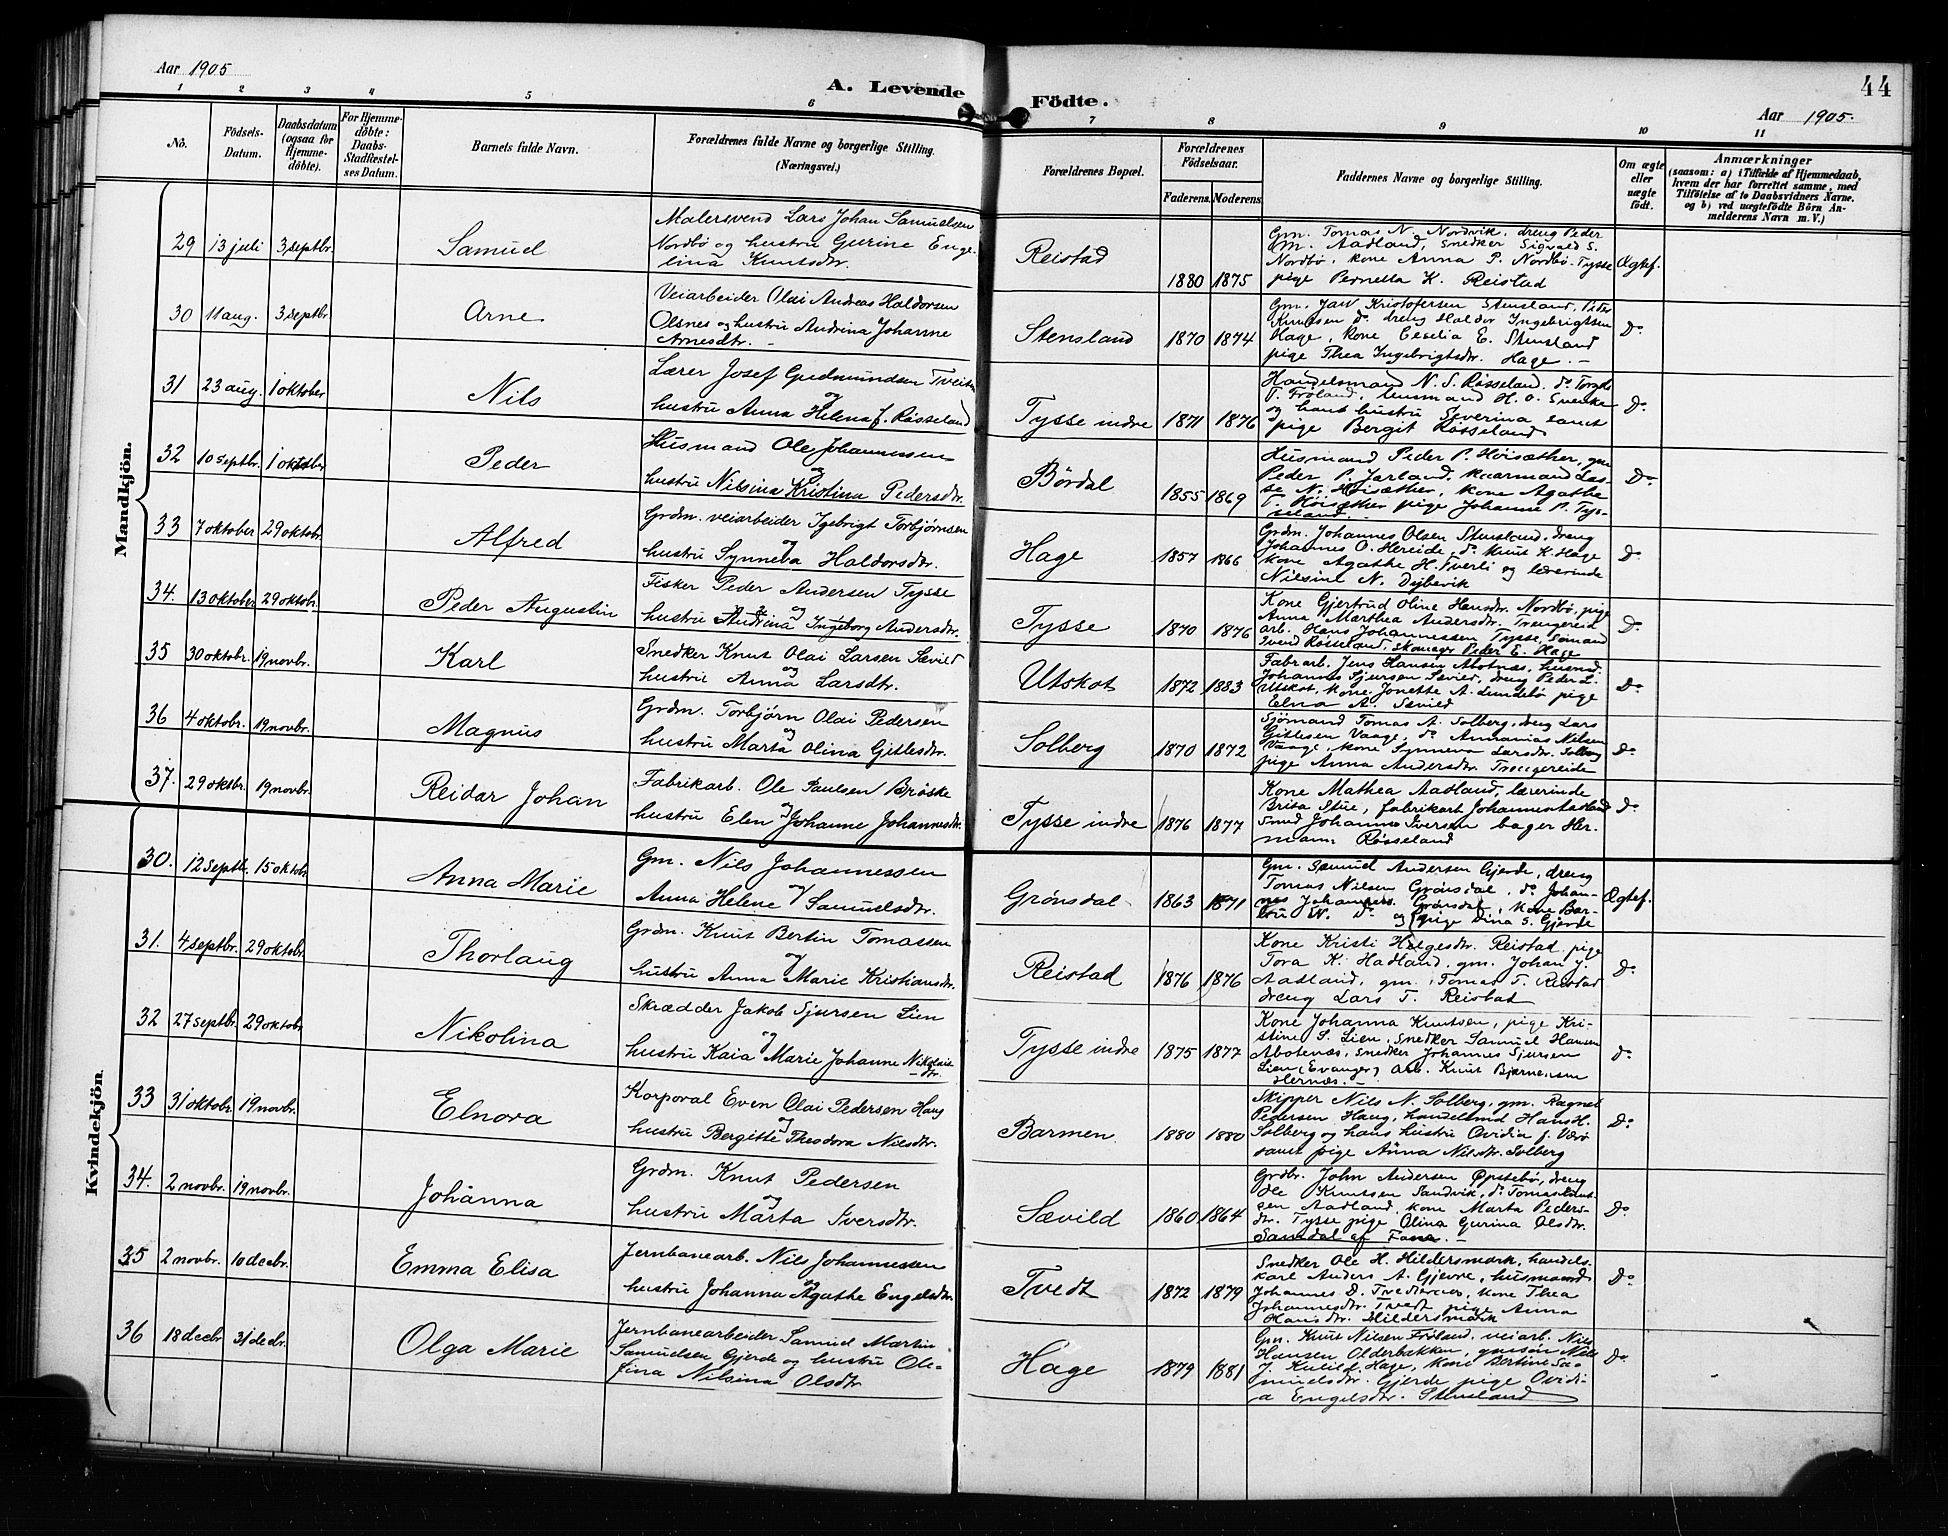 Aar 1905
A. Levende Födte.
44
Aar 1905.
1 2 3 4 5 6 7 8 9 10 11
No.
Födsels-Datum.
Daabsdatum (ogsaa for Hjemme-döbte).
For Hjemme-döbte: Daabs-Stadfæstel-ses Datum.
Barnets fulde Navn.
Forældrenes fulde Navne og borgerlige Stilling. (Næringsvei.)
Forældrenes Bopæl.
Forældrenes Födselsaar.
Faderens. Moderens.
Faddernes Navne og borgerlige Stilling.
Om ægte eller uægte födt.
Anmærkninger
(saasom: a) i Tilfælde af Hjemmedaab,
hvem der har forrettet samme, med
Tilföielse af to Daabsvidners Navne.
og b) ved uægtefödte Börn An-
melderens Navn m. V.)
Mandkjön.
29 13 juli 3 septbr. Samuel
Malersvend Lars Johan Samuelsen
Nordbø og hustru Gurine Enge-
lina Knutsdtr.
Reistad 1880 1875
Gm. Tomas N. Nordvik, dreng Peder
Gm. Aadland, Snedker Sigvald S.
Nordbø, kone Anna P. Nordbø. Tysse
pige Pernella K. Reistad
Ægtef.
30 11 aug. 3 septbr. Arne
Veiarbeider Olai Andreas Haldorsen
Olsnes og hustru Andrina Johanne
Arnesdtr.
Stensland 1870 1874
Kristofersen Stensland, Peder
Knudsen do dreng Haldor Ingebrigtsen
Hage, kone Cecilia E. Stensland
pige Thea Ingebrigtsdr. Hage.
Do
31 23 aug. 1 oktober Nils
Lærer Josef Gudmundsen Tveiten
og
hustru Anna Helena f. Røsseland
Tysse indre 1871 1876
Handelsmand N. S. Røsseland. do
T. Frøland, H. O.
og hans hustru Severina samt
pige Bergit Røsseland
Do
32 10 septbr. 1 oktober Peder
Husmand Ole Johannessen
og
hustru Nilsina Kristina Pedersdtr.
Bördal 1855 1869
Husmand Peder P. Høisæther, gm
Peder P. Jarland, Las-
se N. Høisæther, kone Agathe
T. Høisæther pige Johanne P. Tys-
seland.
Do
33 7 oktober 29 oktobr. Alfred
Grdm. veiarbeider Igebrigt Torbjørnsen
og
hustru Synneva Haldorsdtr.
Hage 1857 1866
Grdm. Johannes Olsen Stensland, dreng
Johannes O. Hereide, do Knut K. Hage
kone Agathe H. Tverli og lærerinde
Nilsine N. Dyvevik
Do
34. 13 oktober 29 oktobr. Peder Augustin
Fisker Peder Andersen Tysse
og
hustru Andrina Ingeborg Andersdtr.
Tysse 1870 1876
Kone Gjertrud Oline Hansdtr. Nordbø, pige
Anna Marthea Andersdtr. Trengereid
arb. Hans Johannessen Tysse, Sømand
Svend Røsseland, Peder E. Hage
Do
35 30 oktobr. 19 novbr. Karl
Snedker Knut Olai Larsen Sævild
og
hustru Anna Larsdtr.
Utskot 1872 1883
Fabrarb. Jens Hansen husmd.
Johannes Sjursen Sævild, dreng Peder L.
Utskot, kone Jonette A. Lundebø pige
Elna A. Sævild
Do
36 4 oktobr. 19 novbr. Magnus
Grdm. Torbjørn Olai Pedersen
og
hustru Marta Olina Gitlesdtr.
Solberg 1870 1872
Sjömand Tomas A. Solberg, dreng Lars
Gitlesen Vaage, do Annanias Nilsen
Vaage, kone Synneva Larsdtr. Solberg
pige Anna Andersdtr. Trengereide
Do
37. 29 oktbr. 19 novbr. Reidar Johan
Fabrikarb. Ole Paulsen Brøske
og
hustru Elen Johanne Johannesdtr.
Tysse indre 1876 1877
Kone Mathea Aadland, lærerinde
Brita Stue, fabrikarb Johannes Aadland
Smed Johannes Iversen bager Her-
mann Røsseland
Do
Kvindekjön.
30. 12 septb. 15 oktobr. Anna Marie
Gm. Nils Johannessen
og
Anna Helene Samuelsdtr.
Grönsdal 1863 1871
Gm. Samuel Andersen Gjerde, dreng
Tomas Nilsen Grønsdal, do Johan-
nes Johannes. Grønsdal, kone Bar-
bru N. Do og pige Dina S. Gjerde
Ægtef.
31. 4 septbr. 29 oktobr. Thorlaug
Grdm. Knut Bertin Tomassen
og
hustru Anna Marie Kristiansdtr.
Reistad 1876 1876
Kone Kristi Helgesdtr. Reistad, pige
Tora K. Hadland, gm. Johan J.
Aadland, gm. Tomas T. Reistad
dreng Lars T. Reistad
Do
32 27 septbr. 29 oktobr. Nikolina
Skrædder Jakob Sjursen Lien
og
hustru Kaia Marie Johanne Nikolais-
dtr.
Tysse indre 1875 1877
Kone Johanna Knutsen, pige Kri-
stine S. Lien, Snedker Samuel Hansen
Abotenæs, snedker Johannes Sjursen
Lien (Evanger) Arb. Knut
Hernæs.
Do
33 31 oktobr. 19 novbr. Elnora
Korporal Even Olai Pedersen Haug
og
hustru Bergitte Theodora Nilsdtr.
Barmen 1880 1880
Skipper Nils N. Solberg, gm. Ragnal
Pedersen Haug, handelsmd Hans H.
Solberg og hans hustru Ovidia f.
samt pige Anna Nilsdtr. Solberg
Do
34. 2 novbr. 19 novbr. Johanna
Grdm. Knut Pedersen
og
hustru Marta Iversdtr.
Sævild 1860 1864
Grdbr. John Andersen Øpstebø, dreng
Ole Knutsen Sandvik, do Tomas Knut-
sen Aadland, kone Marta Peders-
dtr. Tysse pige Olina Gurina Olsdtr.
Samdal af Fane.
Do
35 2 novbr. 10 decbr. Emma Elisa
Jernbanearb. Nils Johannessen
og
hustru Johanna Agathe Engelsdtr.
Tvedt 1872 1879
Snedker Ole H. Hildersmark, handels-
karl Anders A. Gjevre, husmand
Johannes D. kone Thea
Johannesdtr. Tvedt pige Anna
Hansdtr. Hildersmark
Do
36 18 decbr 31 decbr. Olga Marie
Jernbanearbeider Samuel Martin
Samuelsen Gjerde og hustru Ole-
fina Nilsina Olsdtr
Hage 1879 1881
Gm. Knut Nilsen Frøland, veiarb. Nils
Hansen Olderbakken, gmsøn Nils
J. Kveild. Hage, kone Bertine Sa-
muelsdtr. Gjerde pige Ovidi-
a Engelsdtr. Stensland
Do